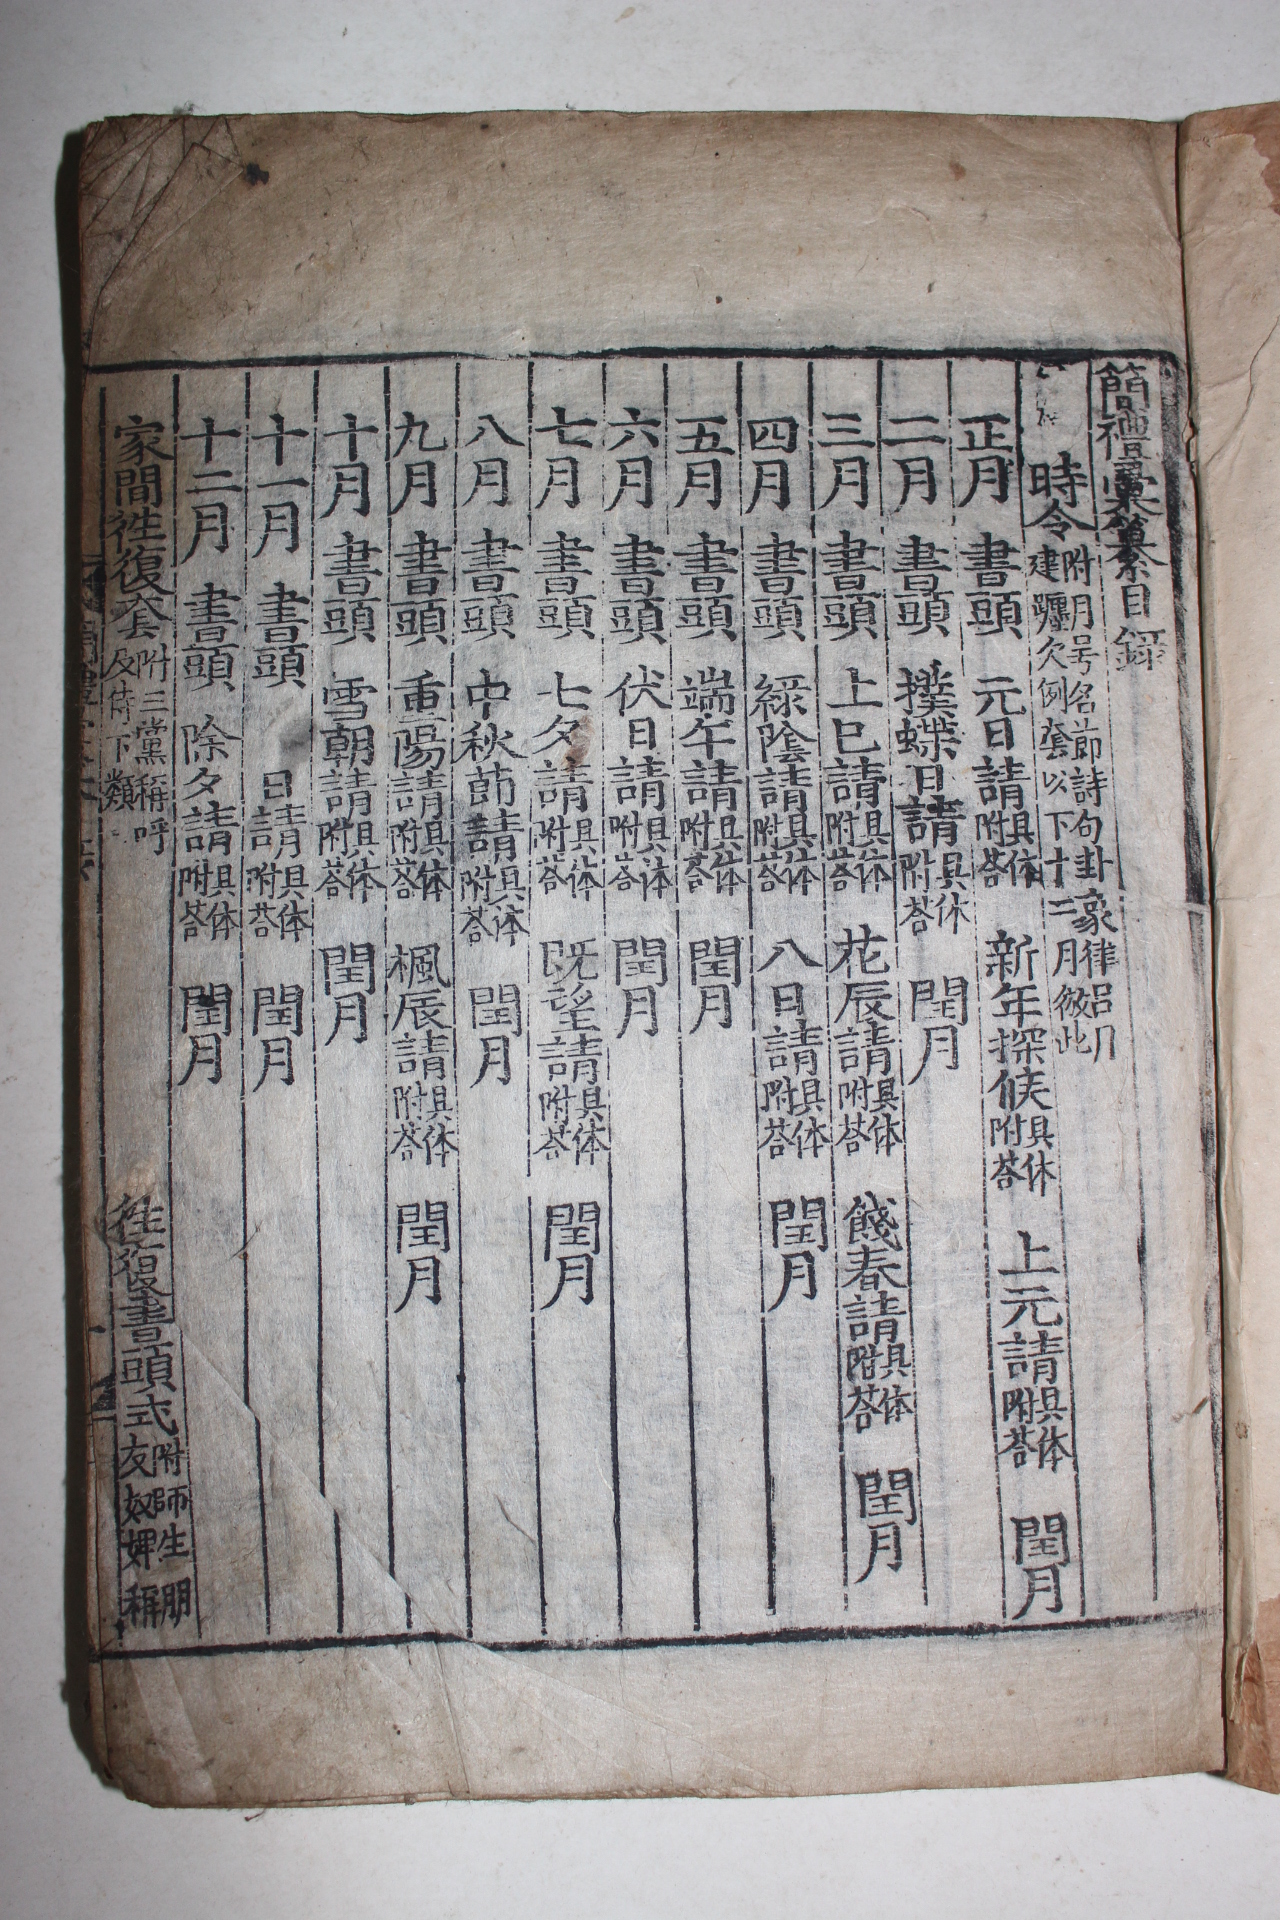 簡禮彙纂目錄
時令 附月号名節詩句卦象律呂月建躔次例套以下十二月倣此
正月 書頭 元日請 具体附荅 新年探候 具体附荅 上元請 具体附荅 閏月
二月 書頭 撲蝶日請 具体附荅 閏月
三月 書頭 上巳請 具体附荅 花辰請 具体附荅 餞春請 具体附荅 閏月
四月 書頭 綠陰請 具体附荅 八日請 具体附荅 閏月
五月 書頭 端午請 具体附荅 閏月
六月 書頭 伏日請 具体附荅 閏月
七月 書頭 七夕請 具体附荅 既望請 具体附荅 閏月
八月 書頭 中秋節請 具体附荅 閏月
九月 書頭 重陽請 具体附荅 楓辰請 具体附荅 閏月
十月 書頭 雪朝請 具体附荅 閏月
十一月 書頭 日請 具体附荅 閏月
十二月 書頭 除夕請 具体附荅 閏月
家間往復套 附三黨稱呼及侍下類 往復書頭式 附師生朋友奴婢稱